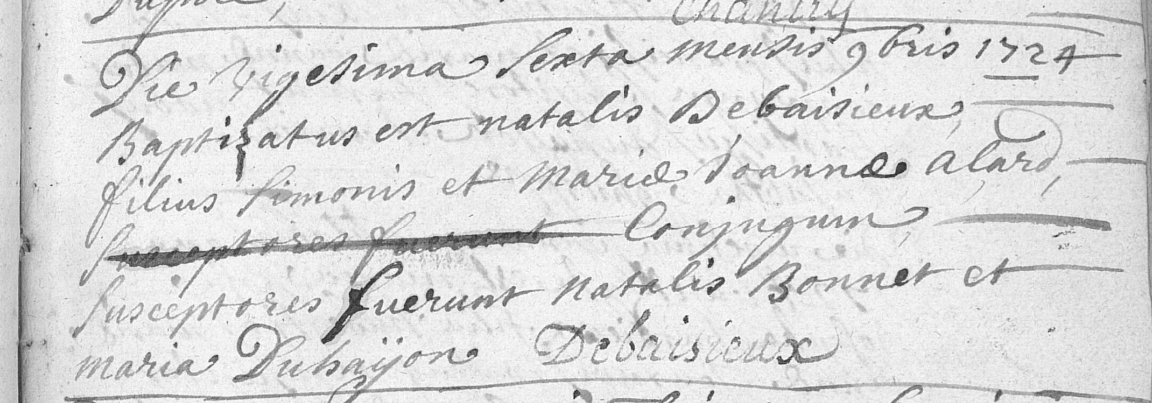 Chantry
Die vigesima sexta mensis 9bris 1724
Baptizatus est natalis Debaisieux,
filius simonis et Mariæ Joannæ alard,
susceptores fuerunt Conjugum,
susceptores fuerunt natalis Bonnet et
maria Duhaÿon Debaisieux